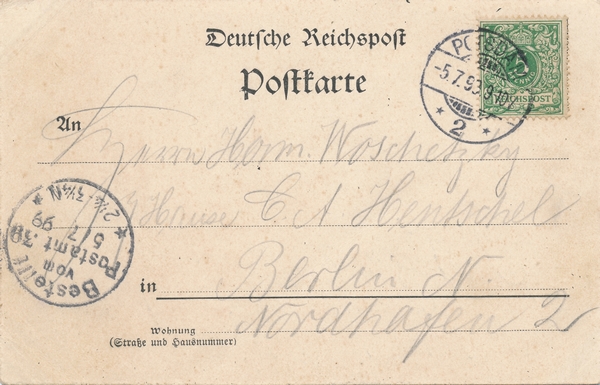 Deutsche Reichspost
Postkarte
POTSDAM
-5.7.99.9-10
* 2 *
REICHSPOST
An
Herrn Herm. Woschetzky
Hause C A Hentschel
in Berlin N.
Nordhafen 2
Wohnung
(Straße und Hausnummer)
Bestellt
vom
Postamt 39
5/7
99
* 2¼-3½N *